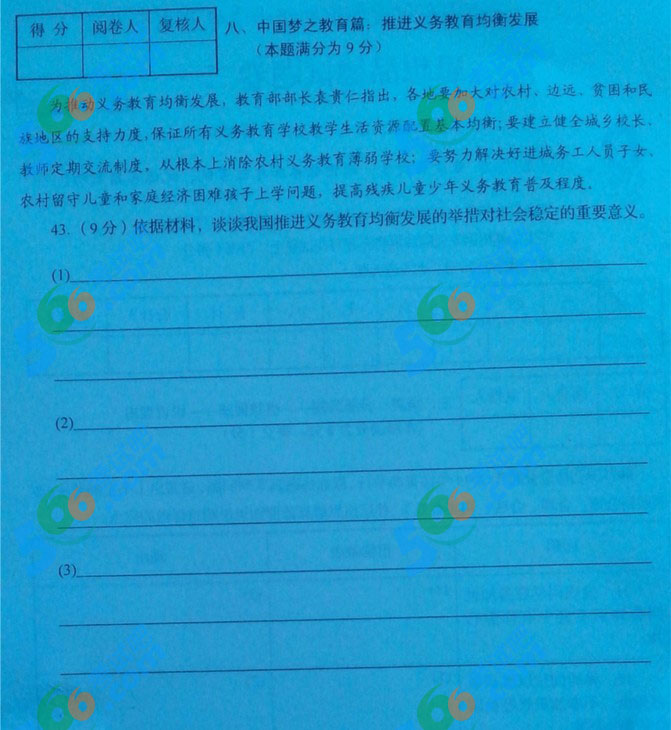 得 分 阅卷人 复核人
八、中国梦之教育篇：推进义务教育均衡发展
（本题满分为 9 分）
为推动义务教育均衡发展，教育部部长袁贵仁指出，各地要加大对农村、边远、贫困和民
族地区的支持力度，保证所有义务教育学校教学生活资源配置基本均衡；要建立健全城乡校长、
教师定期交流制度，从根本上消除农村义务教育薄弱学校；要努力解决好进城务工人员子女、
农村留守儿童和家庭经济困难孩子上学问题，提高残疾儿童少年义务教育普及程度。
43.（9 分）依据材料，谈谈我国推进义务教育均衡发展的举措对社会稳定的重要意义。
(1)
(2)
(3)